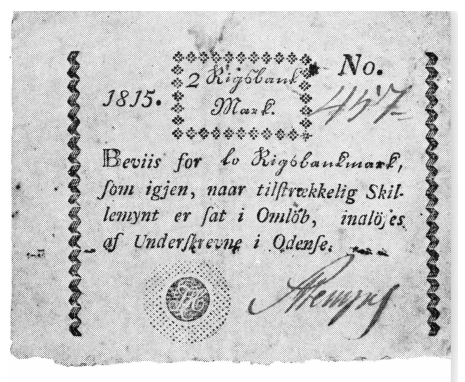 2 Rigsbank
Mark.
1815.
No.
457
Beviis for to Rigsbankmark,
som igjen, naar tilstrækkelig Skil-
lemynt er sat i Omlöb, inalöses
af Underskrevne i Odense.